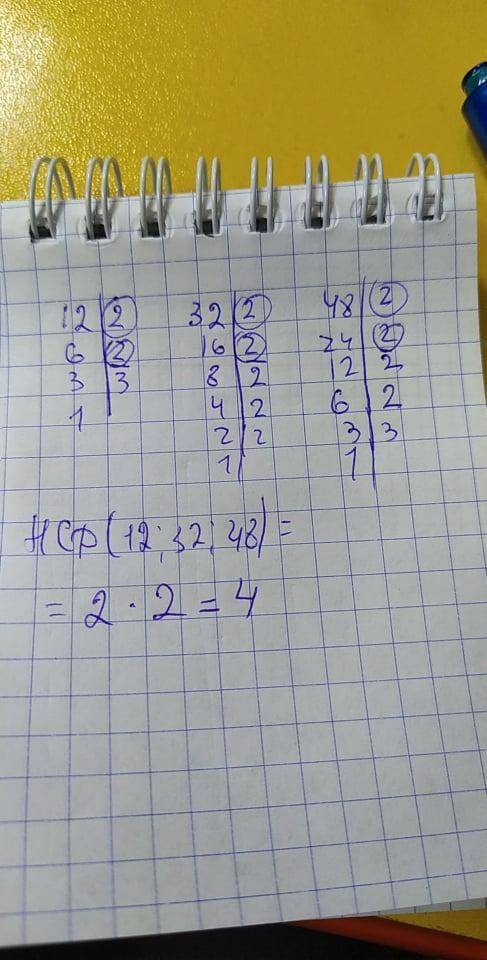 12 | 2
6 | 2
3 | 3
1 |
32 | 2
16 | 2
8 | 2
4 | 2
2 | 2
1 |
48 | 2
24 | 2
12 | 2
6 | 2
3 | 3
1 |
НСФ(12; 32; 48) =
= 2 · 2 = 4